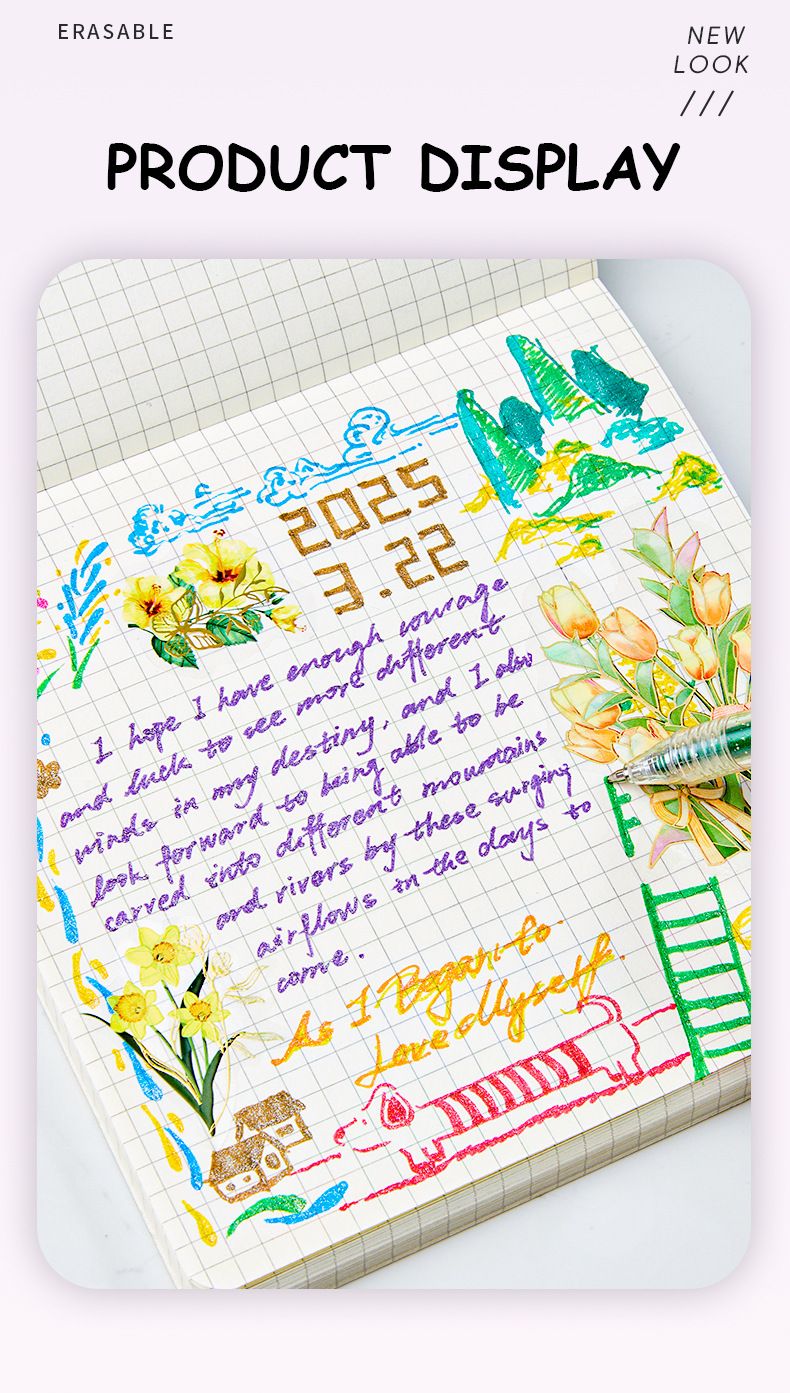 ERASABLE
NEW
LOOK
///
PRODUCT DISPLAY
2025
3.22
I hope I have enough courage
and luck to see more different
winds in my destiny, and I also
look forward to being able to be
carved into different mountains
and rivers by these surging
airflows in the days to
come.
As I Began to
Love Myself.